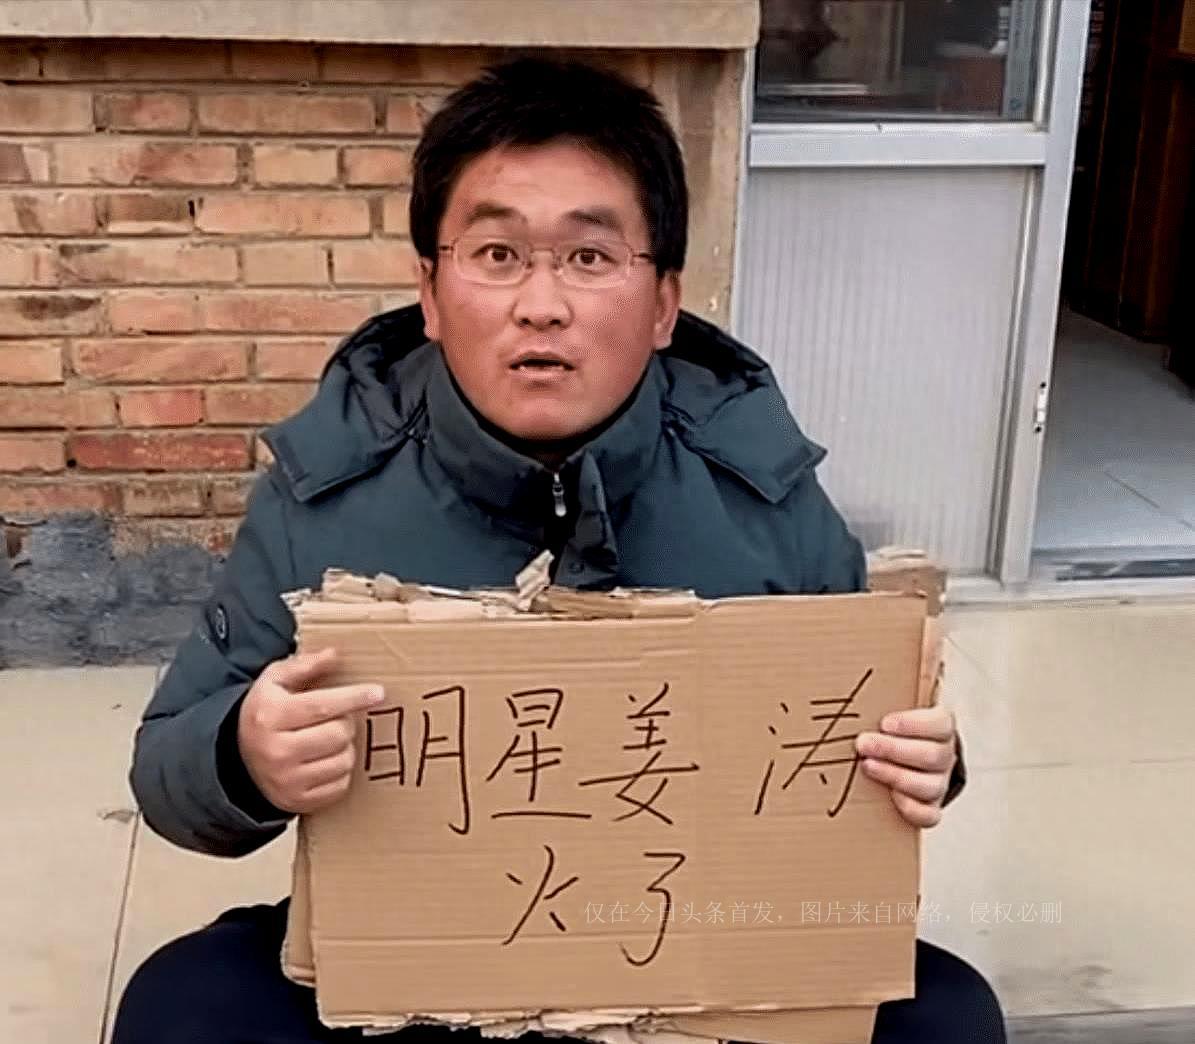 明星姜 涛
火了
仅在今日头条首发，图片来自网络，侵权必删